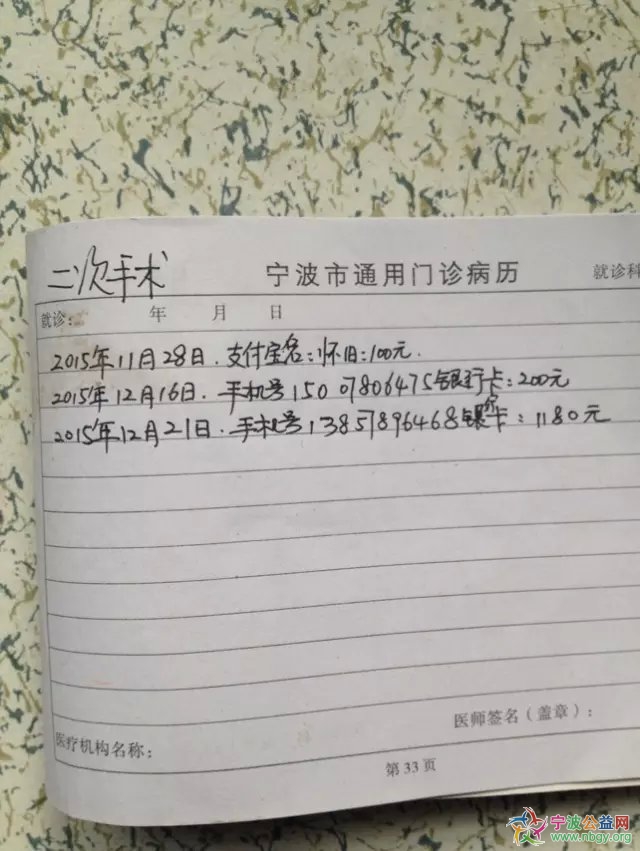 二次手术 宁波市通用门诊病历 就诊科
就诊: 年 月 日
2015年11月28日. 支付宝名:怀旧:100元.
2015年12月16日. 手机号15007806475银行卡:200元
2015年12月21日. 手机号13857896468银行卡:1180元
医师签名(盖章):
医疗机构名称:
第 33 页
宁波公益网
www.nbgy.org